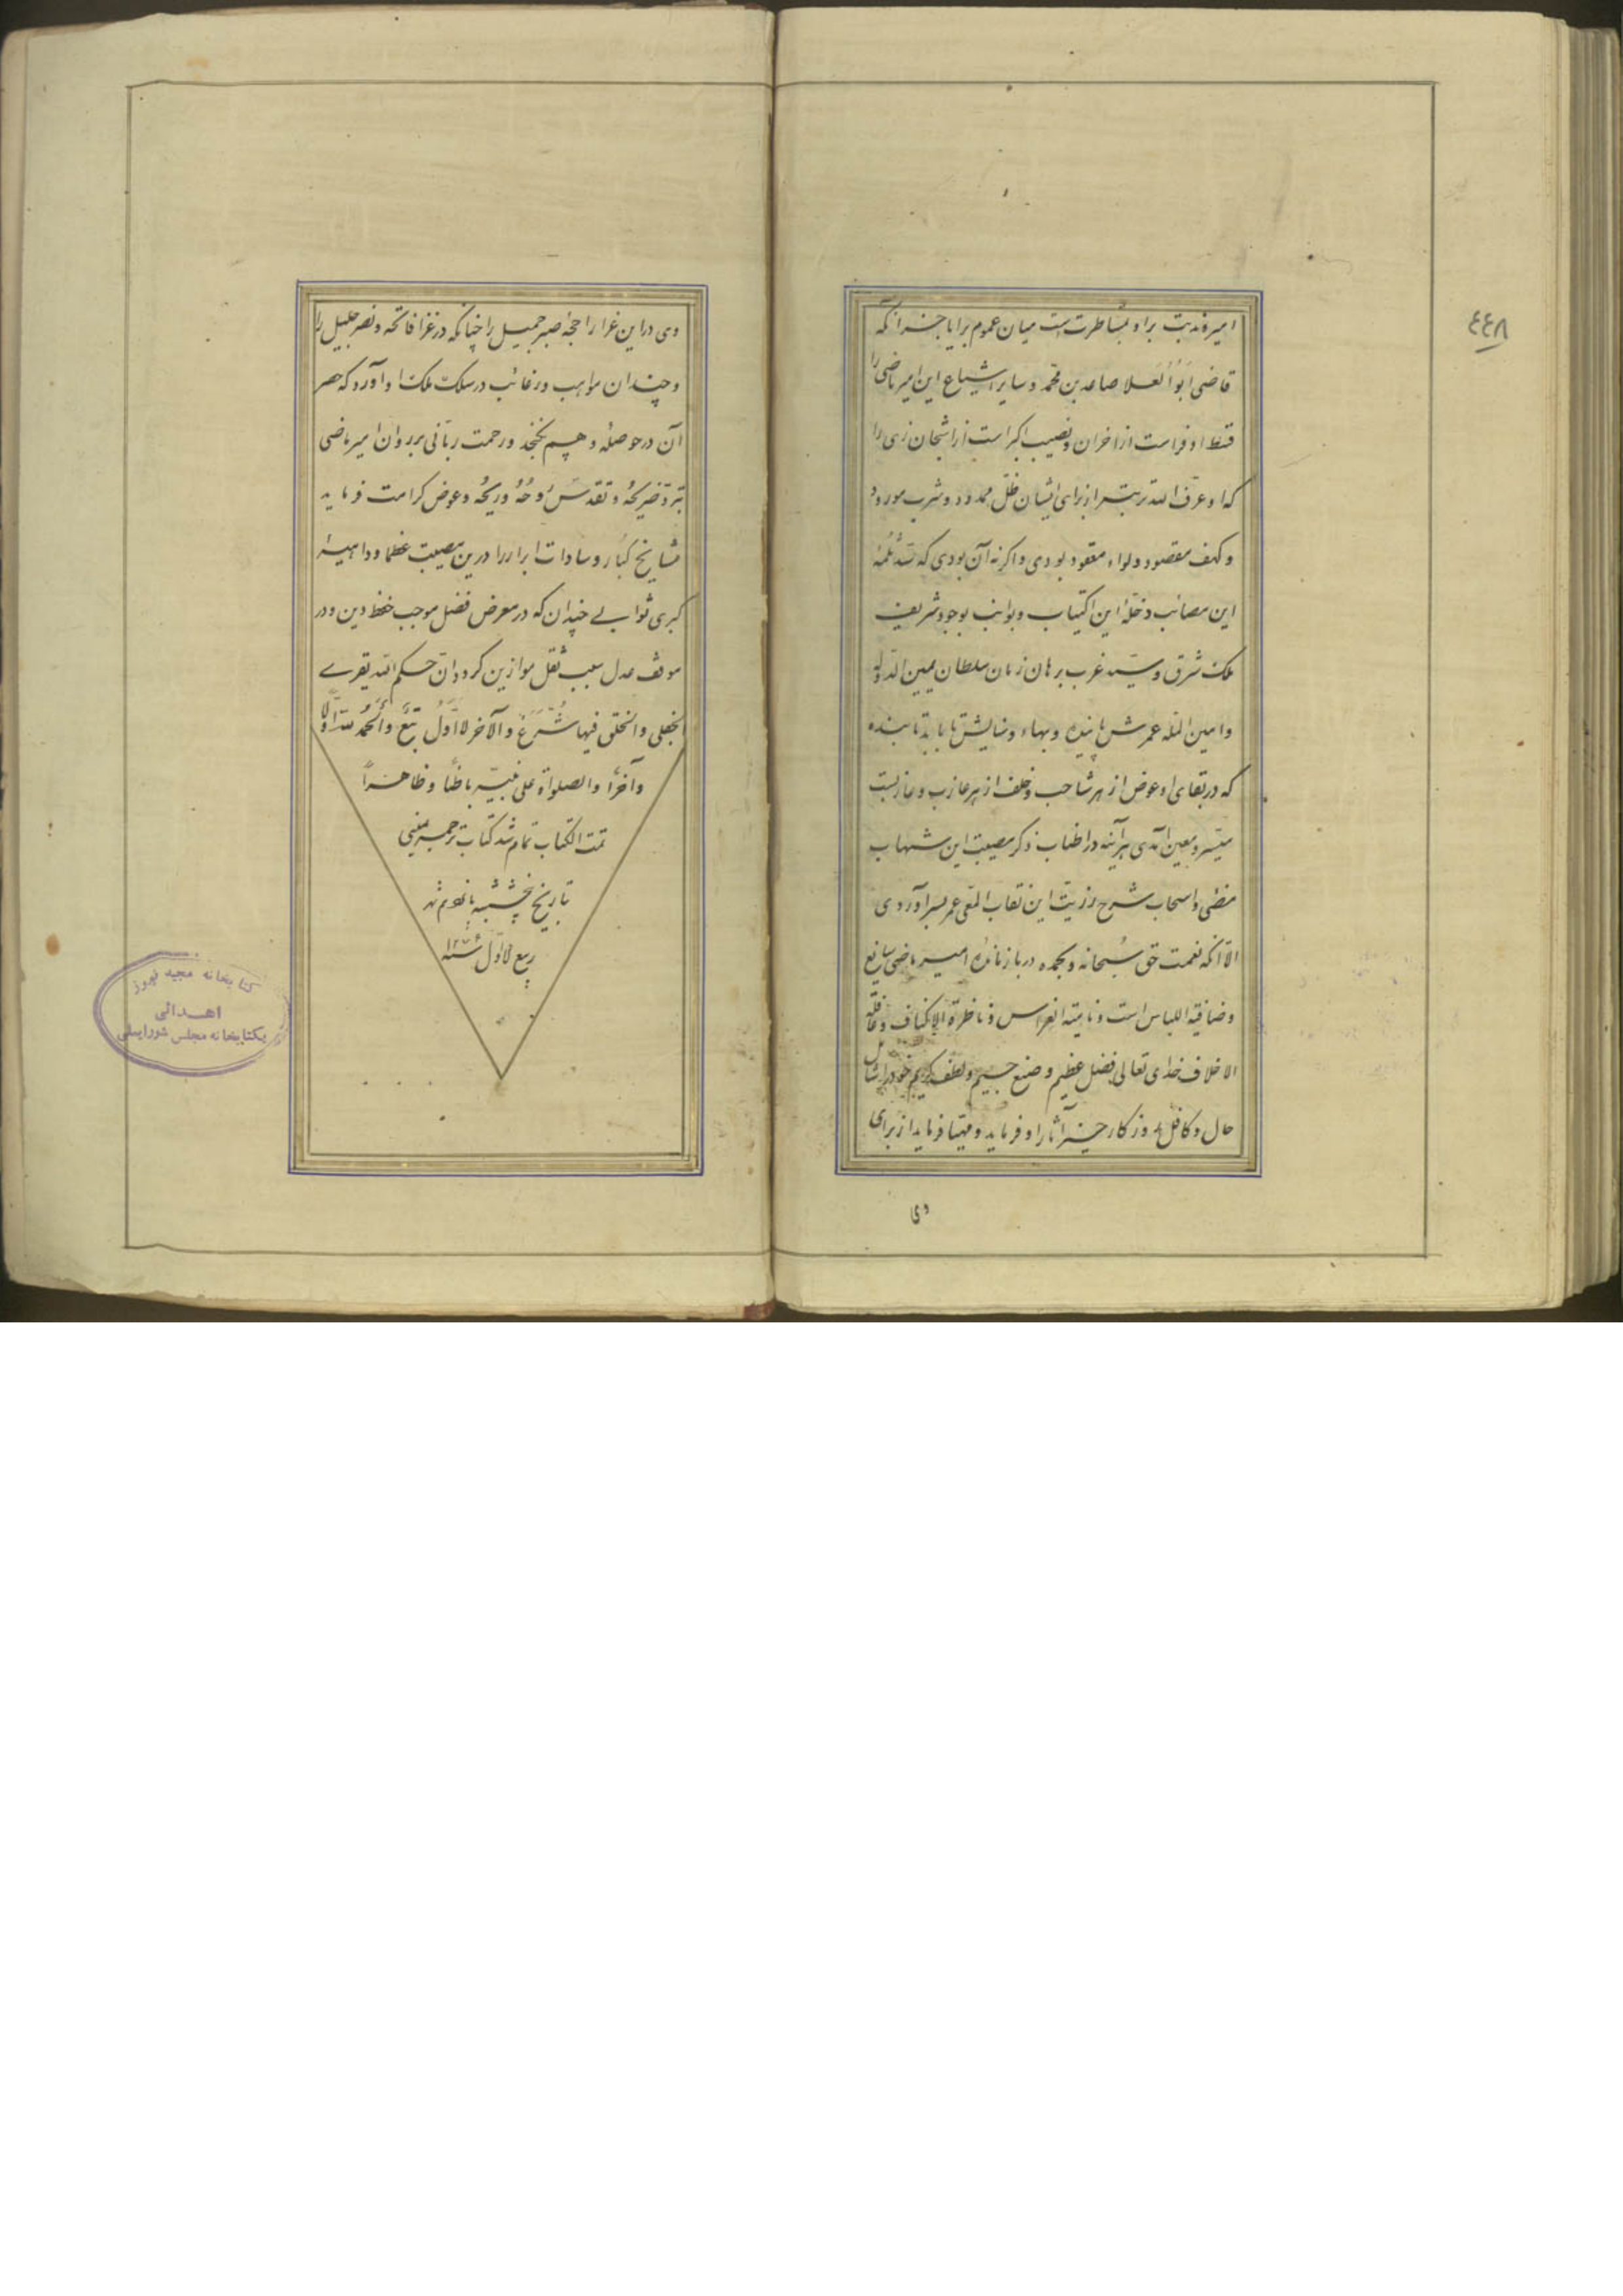 ٤٤٨
امیر و ندبت بر او بمشاطرت است میان عموم برایا جز آنکه
قاضی ابو العلا صاعد بن محمد و سایر اشیاع این امیر ماضی را
قسط اوفر است از اخزان و نصیب اکبر است از اشجان زیرا
که او عرف الله تربته از برای ایشان ظل ممدود و شرب مورود
و کهف مقصود و لواء معقود بودی و اگر نه آن بودی که سد ثلمه
این مصائب و خله این اکتیاب و نوائب بوجود شریف
ملک شرق و سید غرب برهان زمان سلطان یمین الدوله
و امین المله عمرش پاینده و بهاء و سایش تا بابد تابنده
که در بقای او عوض از هر شاحب و خلف از هر عازب و عازبست
میسر و معین آمدی هر آینه در اطناب ذکر مصیبت این شهاب
مضئی و اسحاب شرح رزیت این نقاب المعی عمر بسر آوردی
الا آنکه نعمت حق سبحانه و بحمده در باز مانده امیر ماضی سابغ
و ضافیة اللباس است و نامیة الغراس و ناضرة الاکناف و حافلة
الاخلاف خدای تعالی فضل عظیم و صنع جسیم و لطف کریم خود را شامل
حال و کافل روزگار خیر آثار او فرماید و مهیا فرماید از برای
وی
وی در این عزا راحجة صبر جمیل را چنانکه در غزا فاتحه و نصر جلیل را
و چندان مواهب و رغائب در سلک ملک او آورد که حصر
آن در حوصله وهم نگنجد و رحمت ربانی بر روان امیر ماضی
تبرد ضریحه و تقدس روحه و ریحه و عوض کرامت فرماید
مشایخ کبار و سادات ابرار را درین مصیبت عظما و داهیه
کبری ثوابی چندان که در معرض فضل موجب حفظ دین و در
موقف عدل سبب ثقل موازین گردد ان حکم الله یقرے
الجفلی و الخلق فیها شرع و الآخر للاول تبع و الحمد لله اولا
و آخرا و الصلواة علی نبیه باطنا و ظاهرا
تمت الکتاب تمام شد کتاب ترجمه یمینی
بتاریخ پنجشنبه پانزدهم شهر
ربیع الاول سنه
کتابخانه مجید فیروز
اهدائی
بکتابخانه مجلس شورایملی